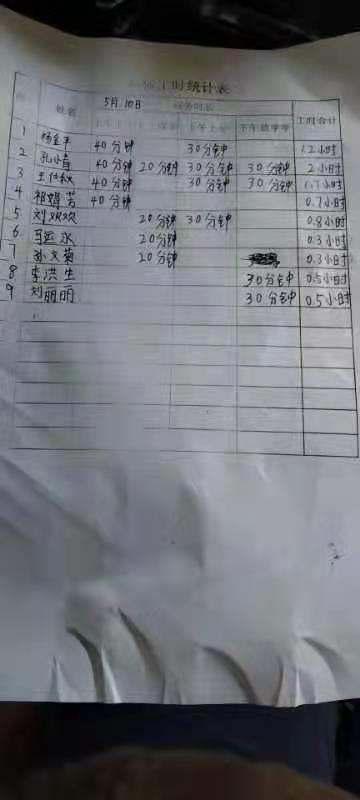 工时统计表
姓名 5月10日 工时合计
下午放学
1 杨金平 40分钟 30分钟 1.2小时
2 孔小春 40分钟 20分钟 30分钟 30分钟 2小时
3 40分钟 30分钟 30分钟 1.7小时
4 祖娟芳 40分钟 0.7小时
5 刘欢欢 20分钟 30分钟 0.8小时
6 20分钟 0.3小时
7 孙文菊 20分钟 0.3小时
8 李洪生 30分钟 0.5小时
9 刘丽丽 30分钟 0.5小时